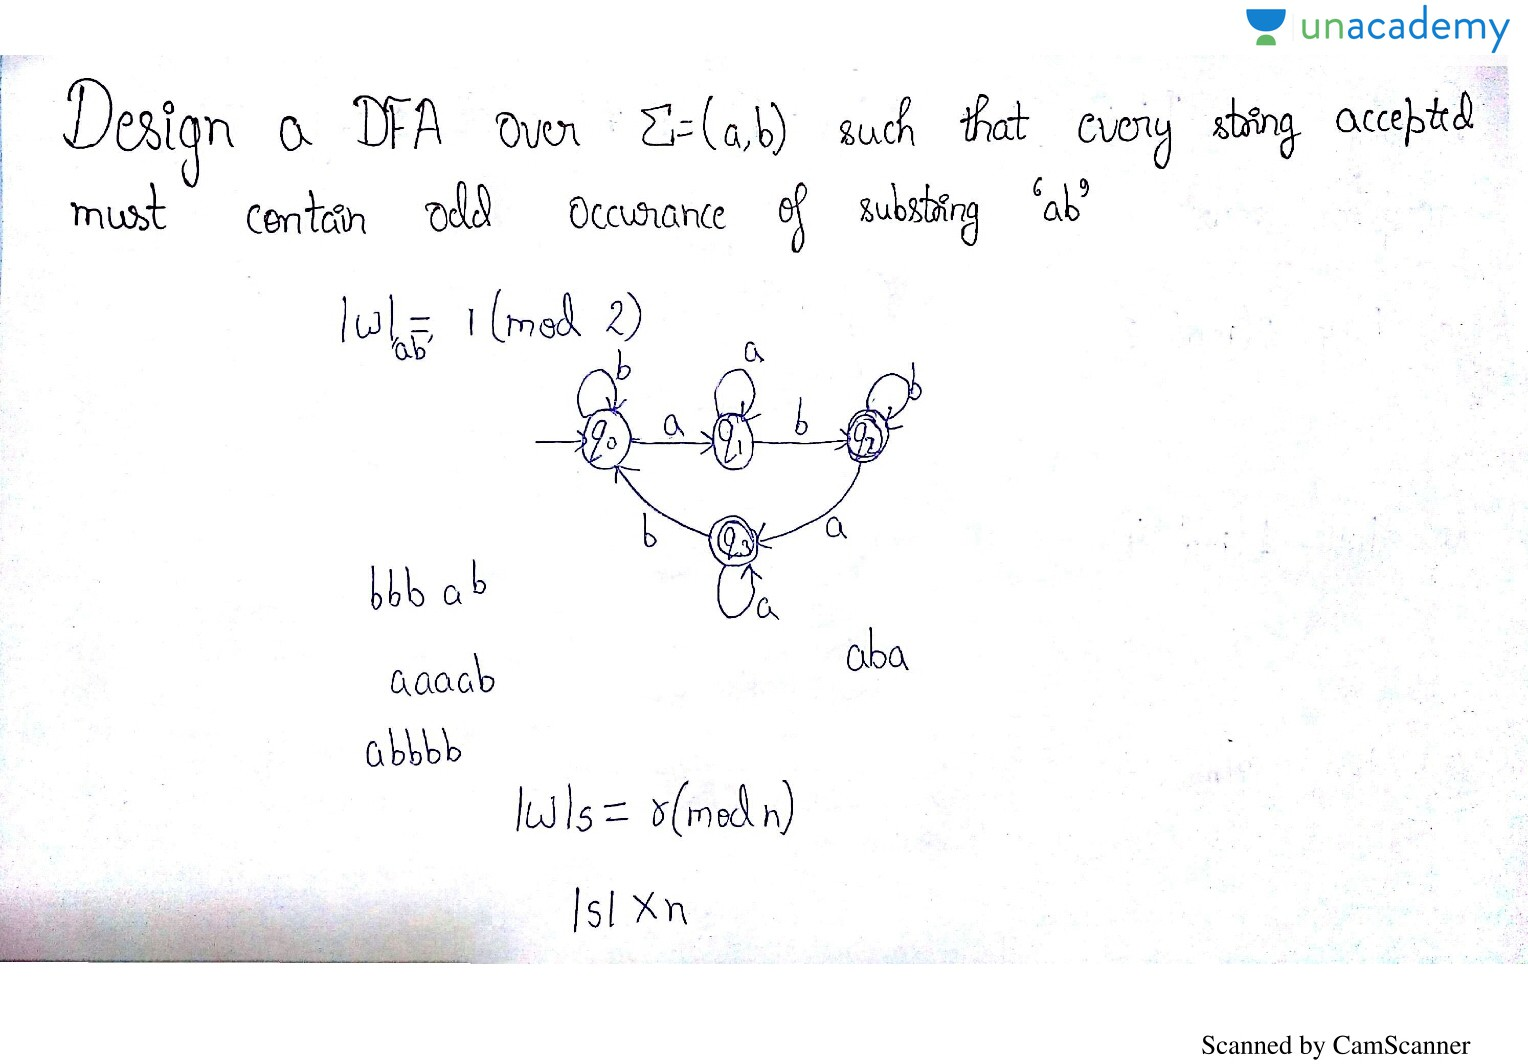 unacademy
Design a DFA over Σ=(a,b) such that every string accepted
must contain odd occurance of substring 'ab'
|w|'ab' = 1 (mod 2)
b
a
b
q0
a
q1
b
q2
b
q3
a
a
bbb ab
aba
aaaab
abbbb
|w|s = r(mod n)
|s| x n
Scanned by CamScanner